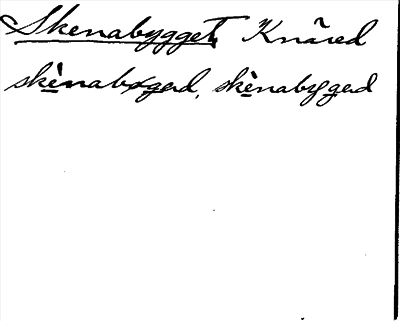 Skenabygget, Knäred
skènabøgəd, skènabygəd